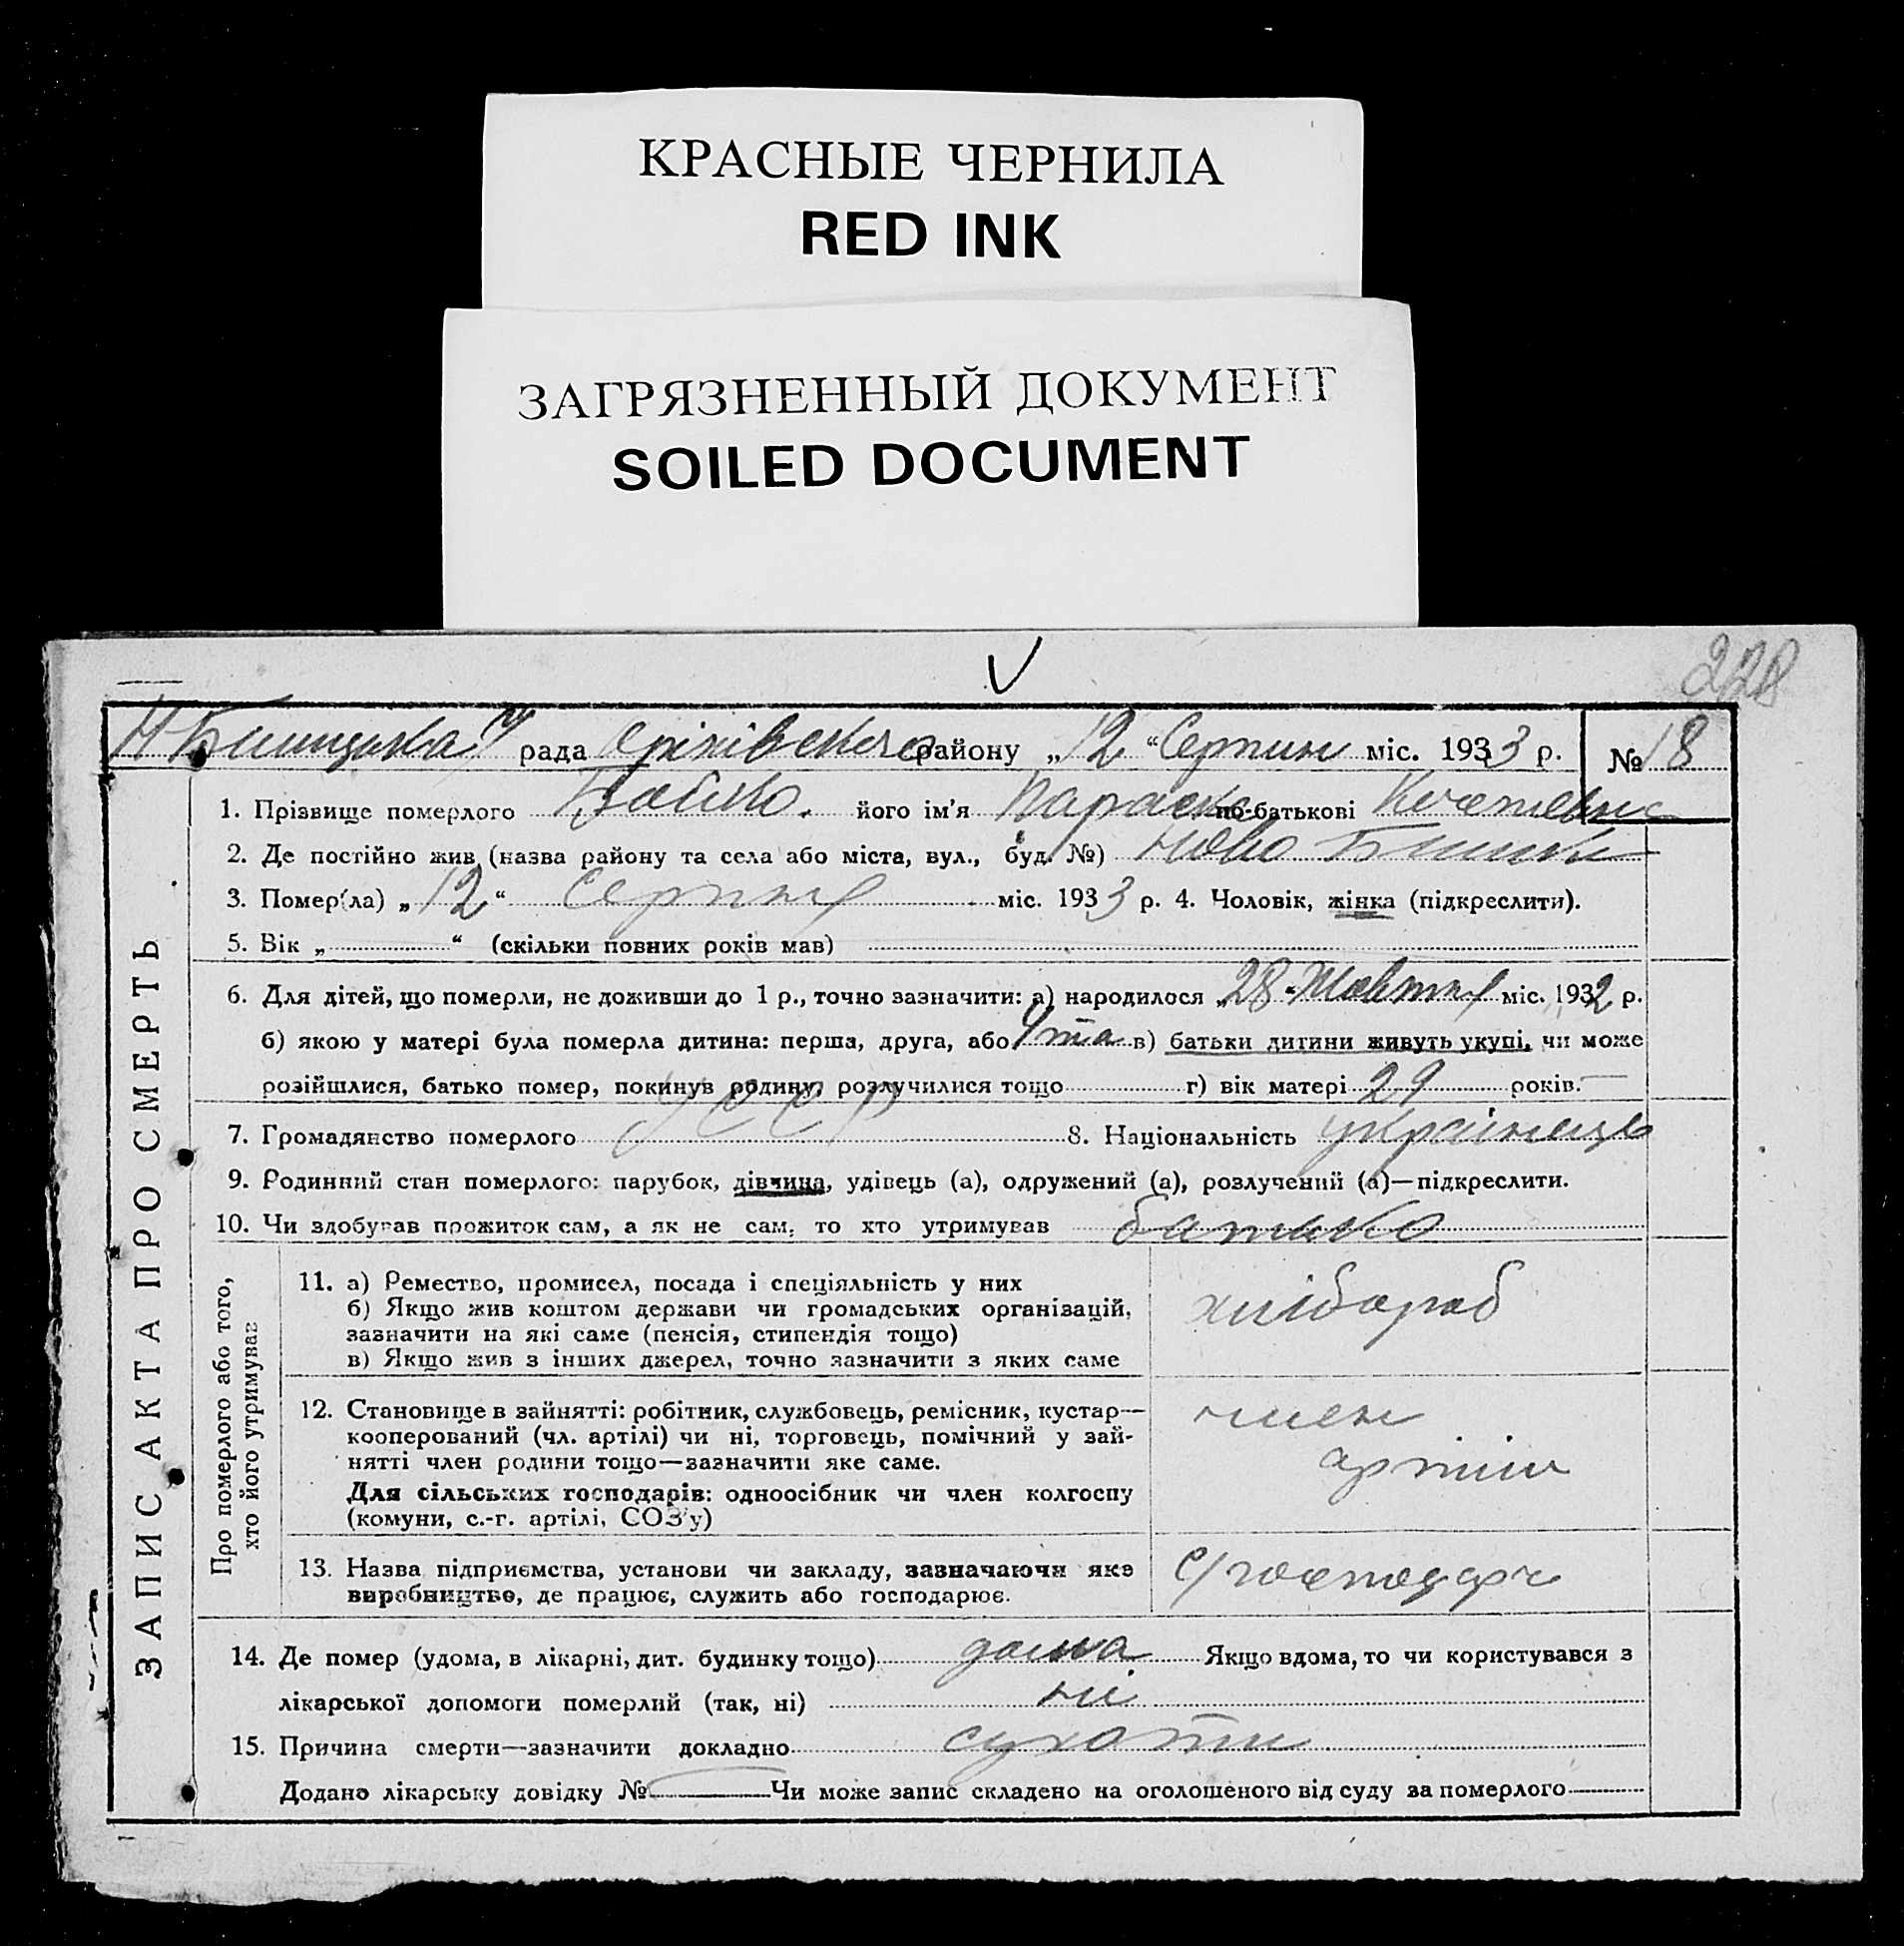 КРАСНЫЕ ЧЕРНИЛА
RED INK
ЗАГРЯЗНЕННЫЙ ДОКУМЕНТ
SOILED DOCUMENT
228
рада району „12“ Серпня міс. 1933 р. № 18
ЗАПИС АКТА ПРО СМЕРТЬ
1. Прізвище померлого Бойко. його ім'я Параска по-батькові
2. Де постійно жив (назва району та села або міста, вул., буд. №) Ново
3. Помер(ла) „12“ Серпня міс. 1933 р. 4. Чоловік, жінка (підкреслити).
5. Вік „ “ (скільки повних років мав)
6. Для дітей, що померли, не доживши до 1 р., точно зазначити: а) народилося „28“ Жовтня міс. 1932 р.
б) якою у матері була померла дитина: перша, друга, або 4та в) батьки дитини живуть укупі, чи може
розійшлися, батько помер, покинув родину, розлучилися тощо г) вік матері 29 років.
7. Громадянство померлого УССР 8. Національність українець
9. Родинний стан померлого: парубок, дівчина, удівець (а), одружений (а), розлучений (а)—підкреслити.
10. Чи здобував прожиток сам, а як не сам, то хто утримував батько
Про померлого або того,
хто його утримував
11. а) Ремество, промисел, посада і спеціяльність у них
б) Якщо жив коштом держави чи громадських організацій,
зазначити на які саме (пенсія, стипендія тощо)
в) Якщо жив з інших джерел, точно зазначити з яких саме
хлібороб
12. Становище в зайнятті: робітник, службовець, ремісник, кустар—
кооперований (чл. артілі) чи ні, торговець, помічний у зай-
нятті член родини тощо—зазначити яке саме.
Для сільських господарів: одноосібник чи член колгоспу
(комуни, с.-г. артілі, СОЗ'у)
член
артіли
13. Назва підприємства, установи чи закладу, зазначаючи яке
виробництво, де працює, служить або господарює.
14. Де помер (удома, в лікарні, дит. будинку тощо) дома Якщо вдома, то чи користувався з
лікарської допомоги померлий (так, ні) ні
15. Причина смерти—зазначити докладно сухоти
Додано лікарську довідку № Чи може запис складено на оголошеного від суду за померлого